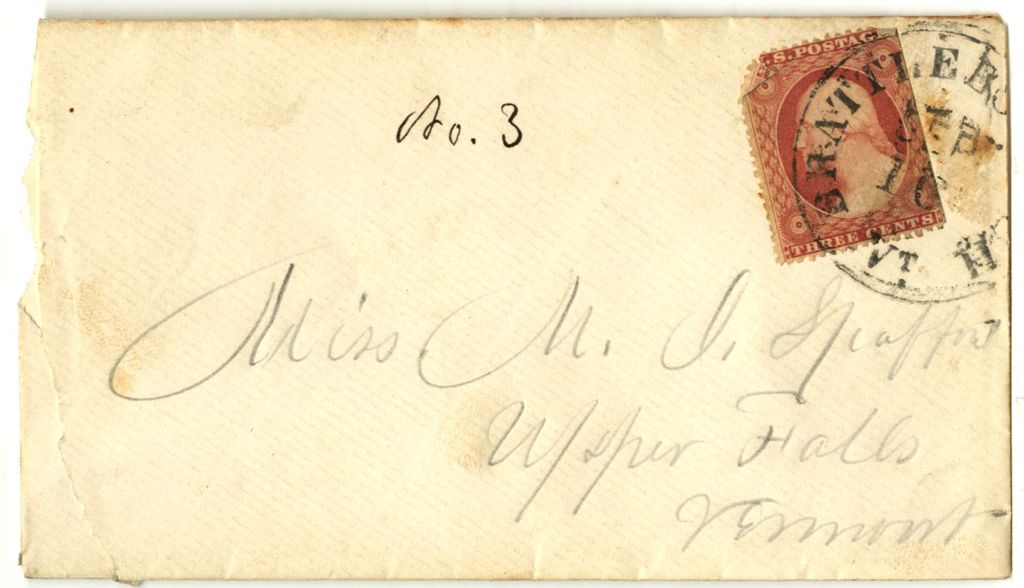 No. 3
U.S. POSTAG
THREE CENTS
BRATTLEBO
SEP.
VT.
Miss. M. J. Spaffor
Upper Falls
Vermont